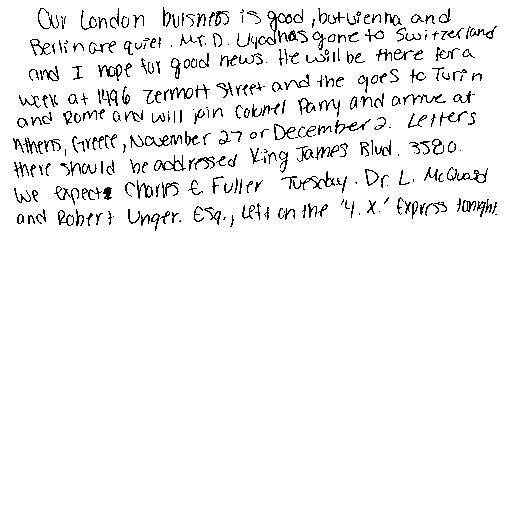 Our London buisness is good, but vienna and
Berlin are quiet. Mr. D. Lloyd has gone to Switzerland
and I hope for good news. He will be there for a
week at 1496 Zermott Street and the goes to Turin
and Rome and will join Colonel Parry and arrive at
Athens, Greece, November 27 or December 2. Letters
there should be addressed King James Blvd. 3580.
We expect Charles E. Fuller Tuesday. Dr. L. McQuaid
and Robert Unger. Esq., Left on the 'Y. X.' Express tonight.